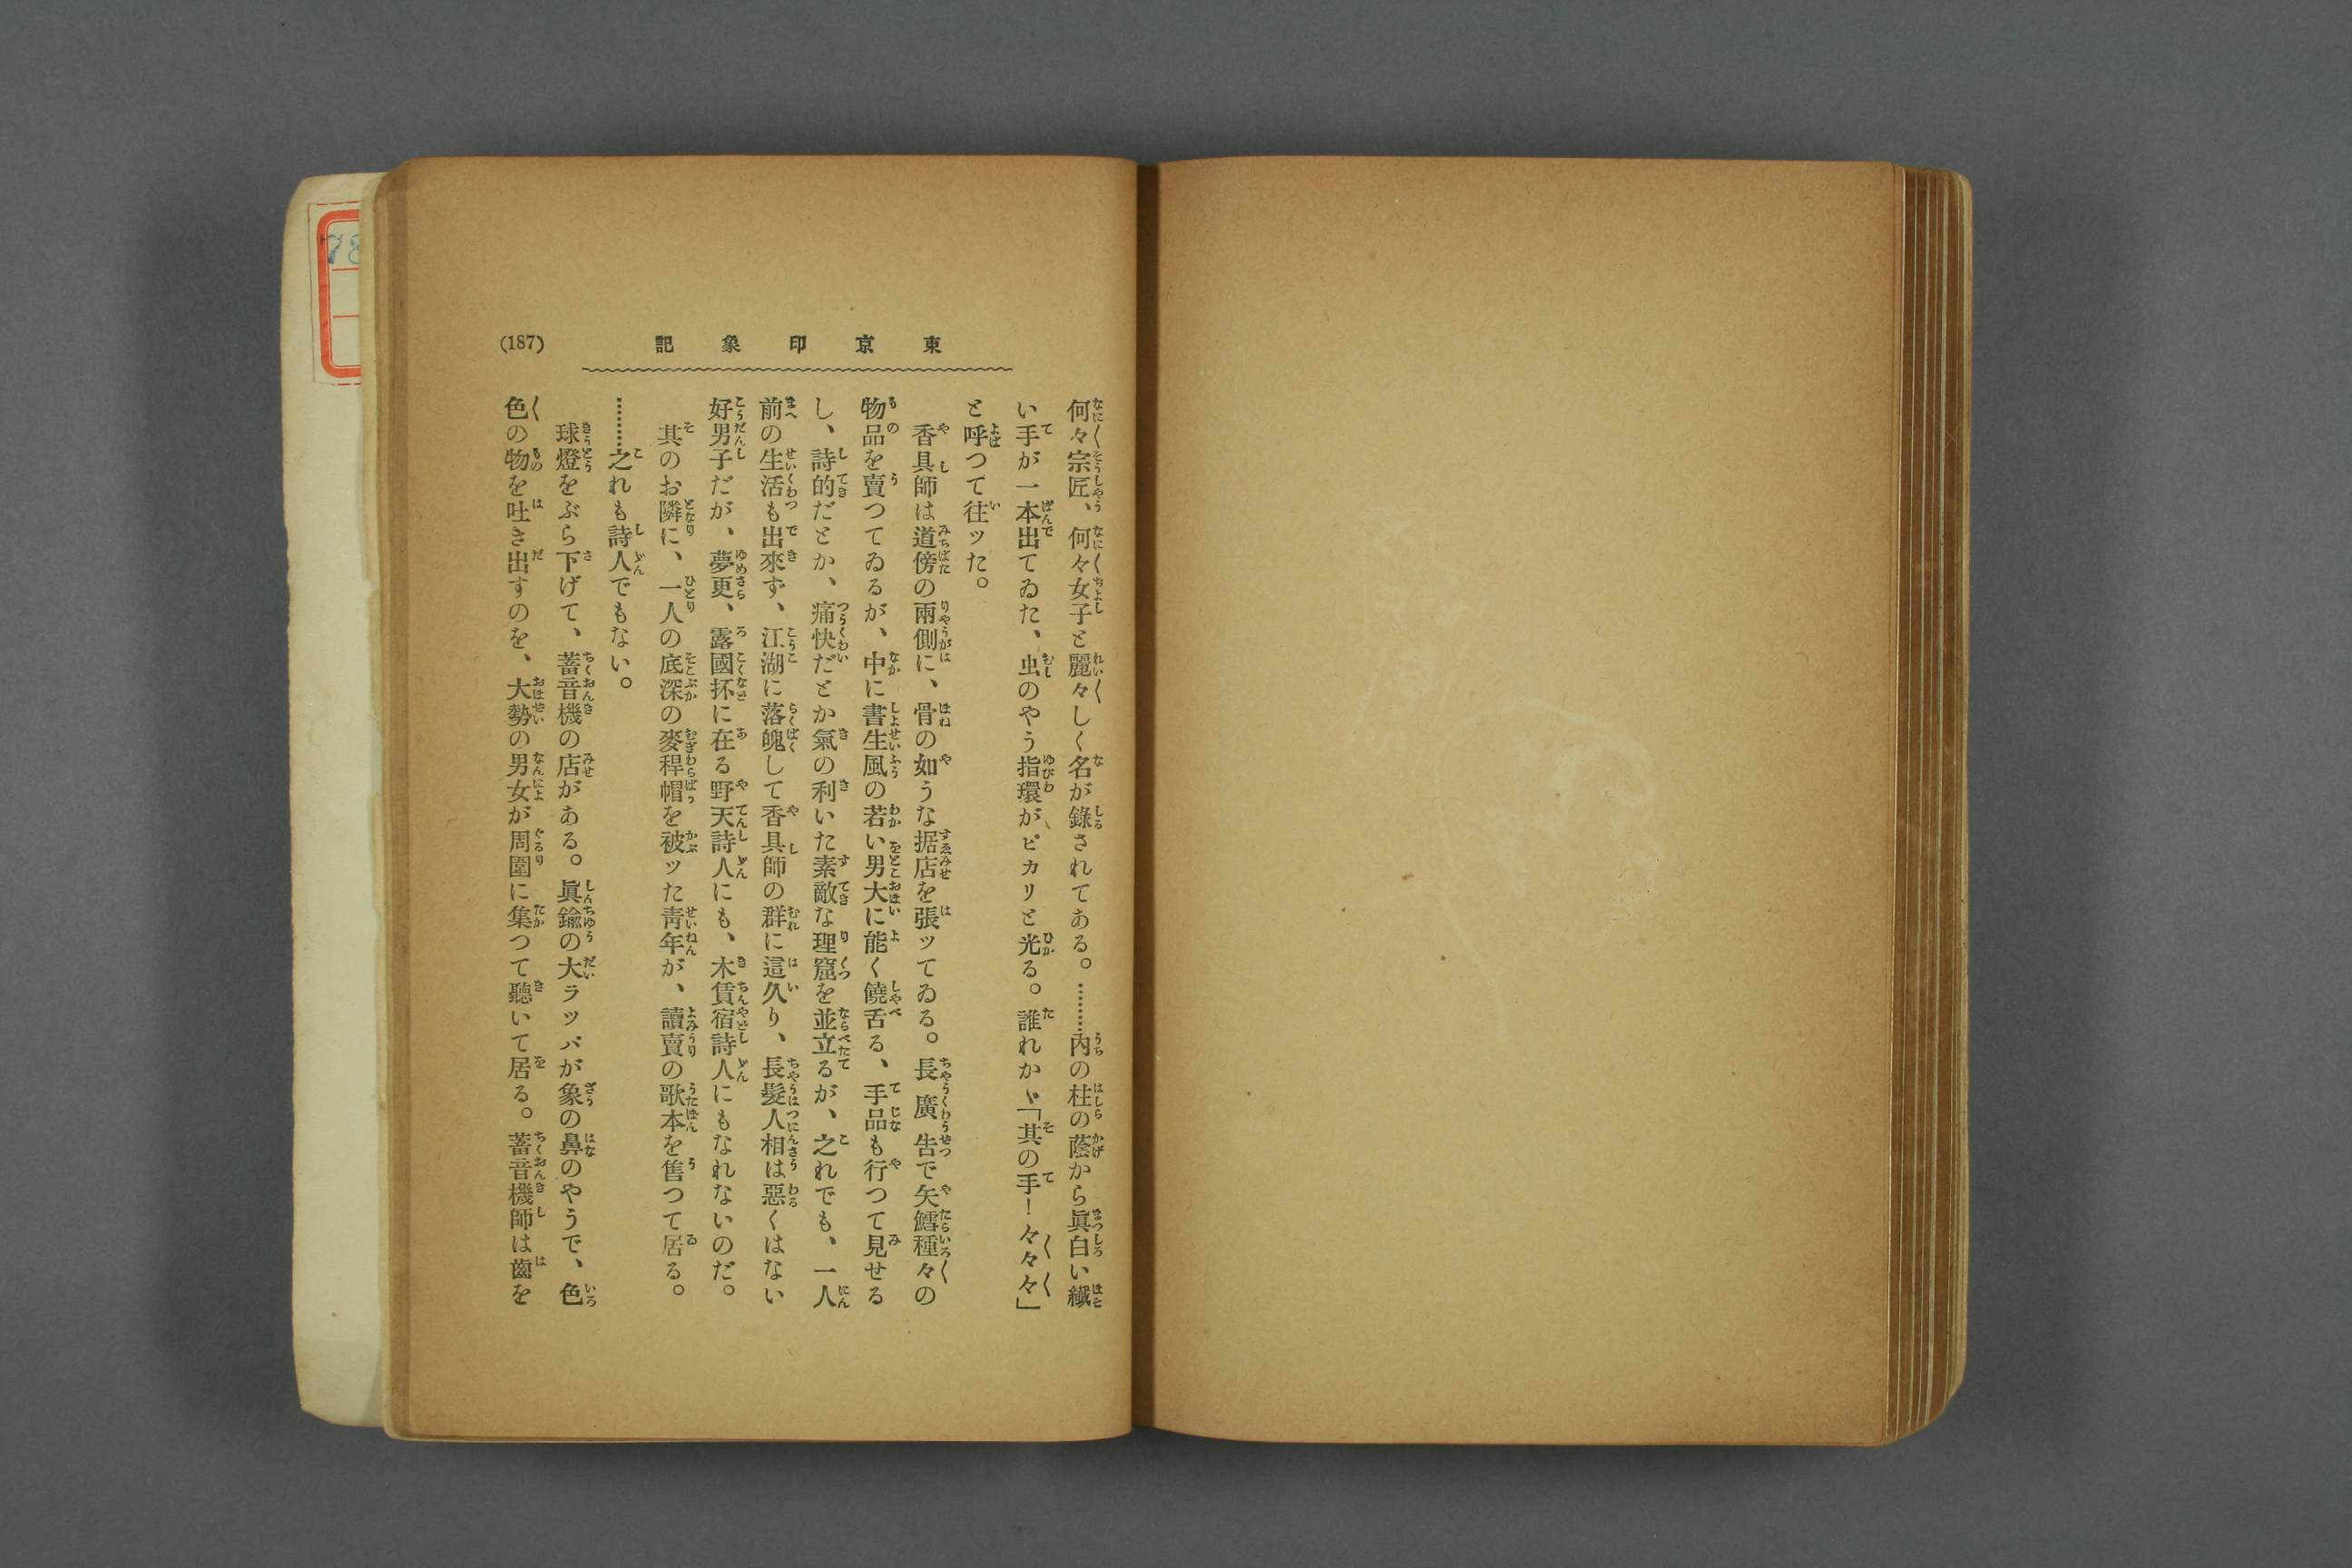 東京印象記
(187)
何々宗匠、何々女子と麗々しく名が錄されてある。………內の柱の蔭から眞白い纖
い手が一本出てゐた、虫のやう指環がピカリと光る。誰れか、「其の手！々々々」
と呼つて往ッた。
香具師は道傍の兩側に、骨の如うな据店を張ッてゐる。長廣告で矢鱈種々の
物品を賣つてゐるが、中に書生風の若い男大に能く饒舌る、手品も行つて見せる
し、詩的だとか、痛快だとか氣の利いた素敵な理窟を並立るが、之れでも、一人
前の生活も出來ず、江湖に落魄して香具師の群に這久り、長髮人相は惡くはない
好男子だが、夢更、露國抔に在る野天詩人にも、木賃宿詩人にもなれないのだ。
其のお隣に、一人の底深の麥稈帽を被ッた靑年が、讀賣の歌本を售つて居る。
………之れも詩人でもない。
球燈をぶら下げて、蓄音機の店がある。眞鍮の大ラッパが象の鼻のやうで、色
色の物を吐き出すのを、大勢の男女が周圍に集つて聽いて居る。蓄音機師は齒を
78